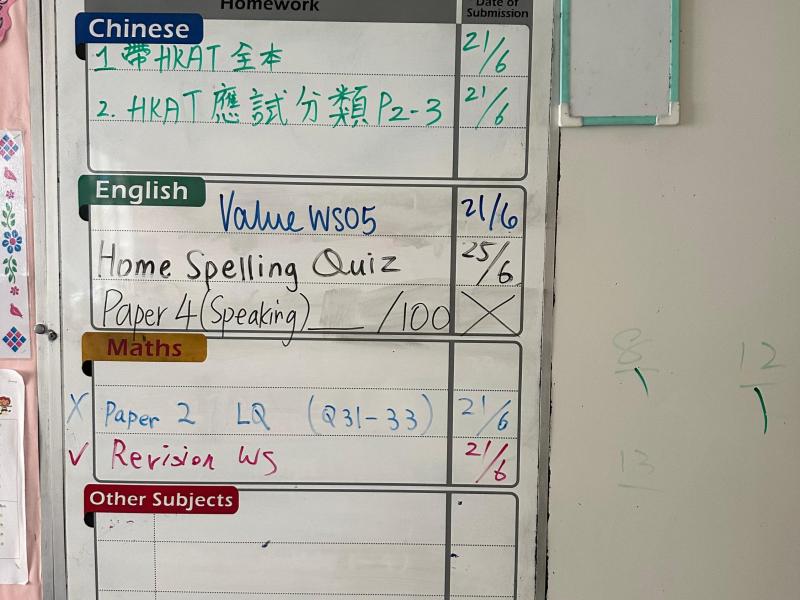 Homework
Date of
Submission
Chinese
1. 帶 HKAT 全本 21/6
2. HKAT 應試分類 P2-3 21/6
English
Value WS05 21/6
Home Spelling Quiz 25/6
Paper 4 (Speaking) ___ /100 X
Maths
X Paper 2 LQ (Q31-33) 21/6
✓ Revision WS 21/6
Other Subjects
8/1
12/1
13